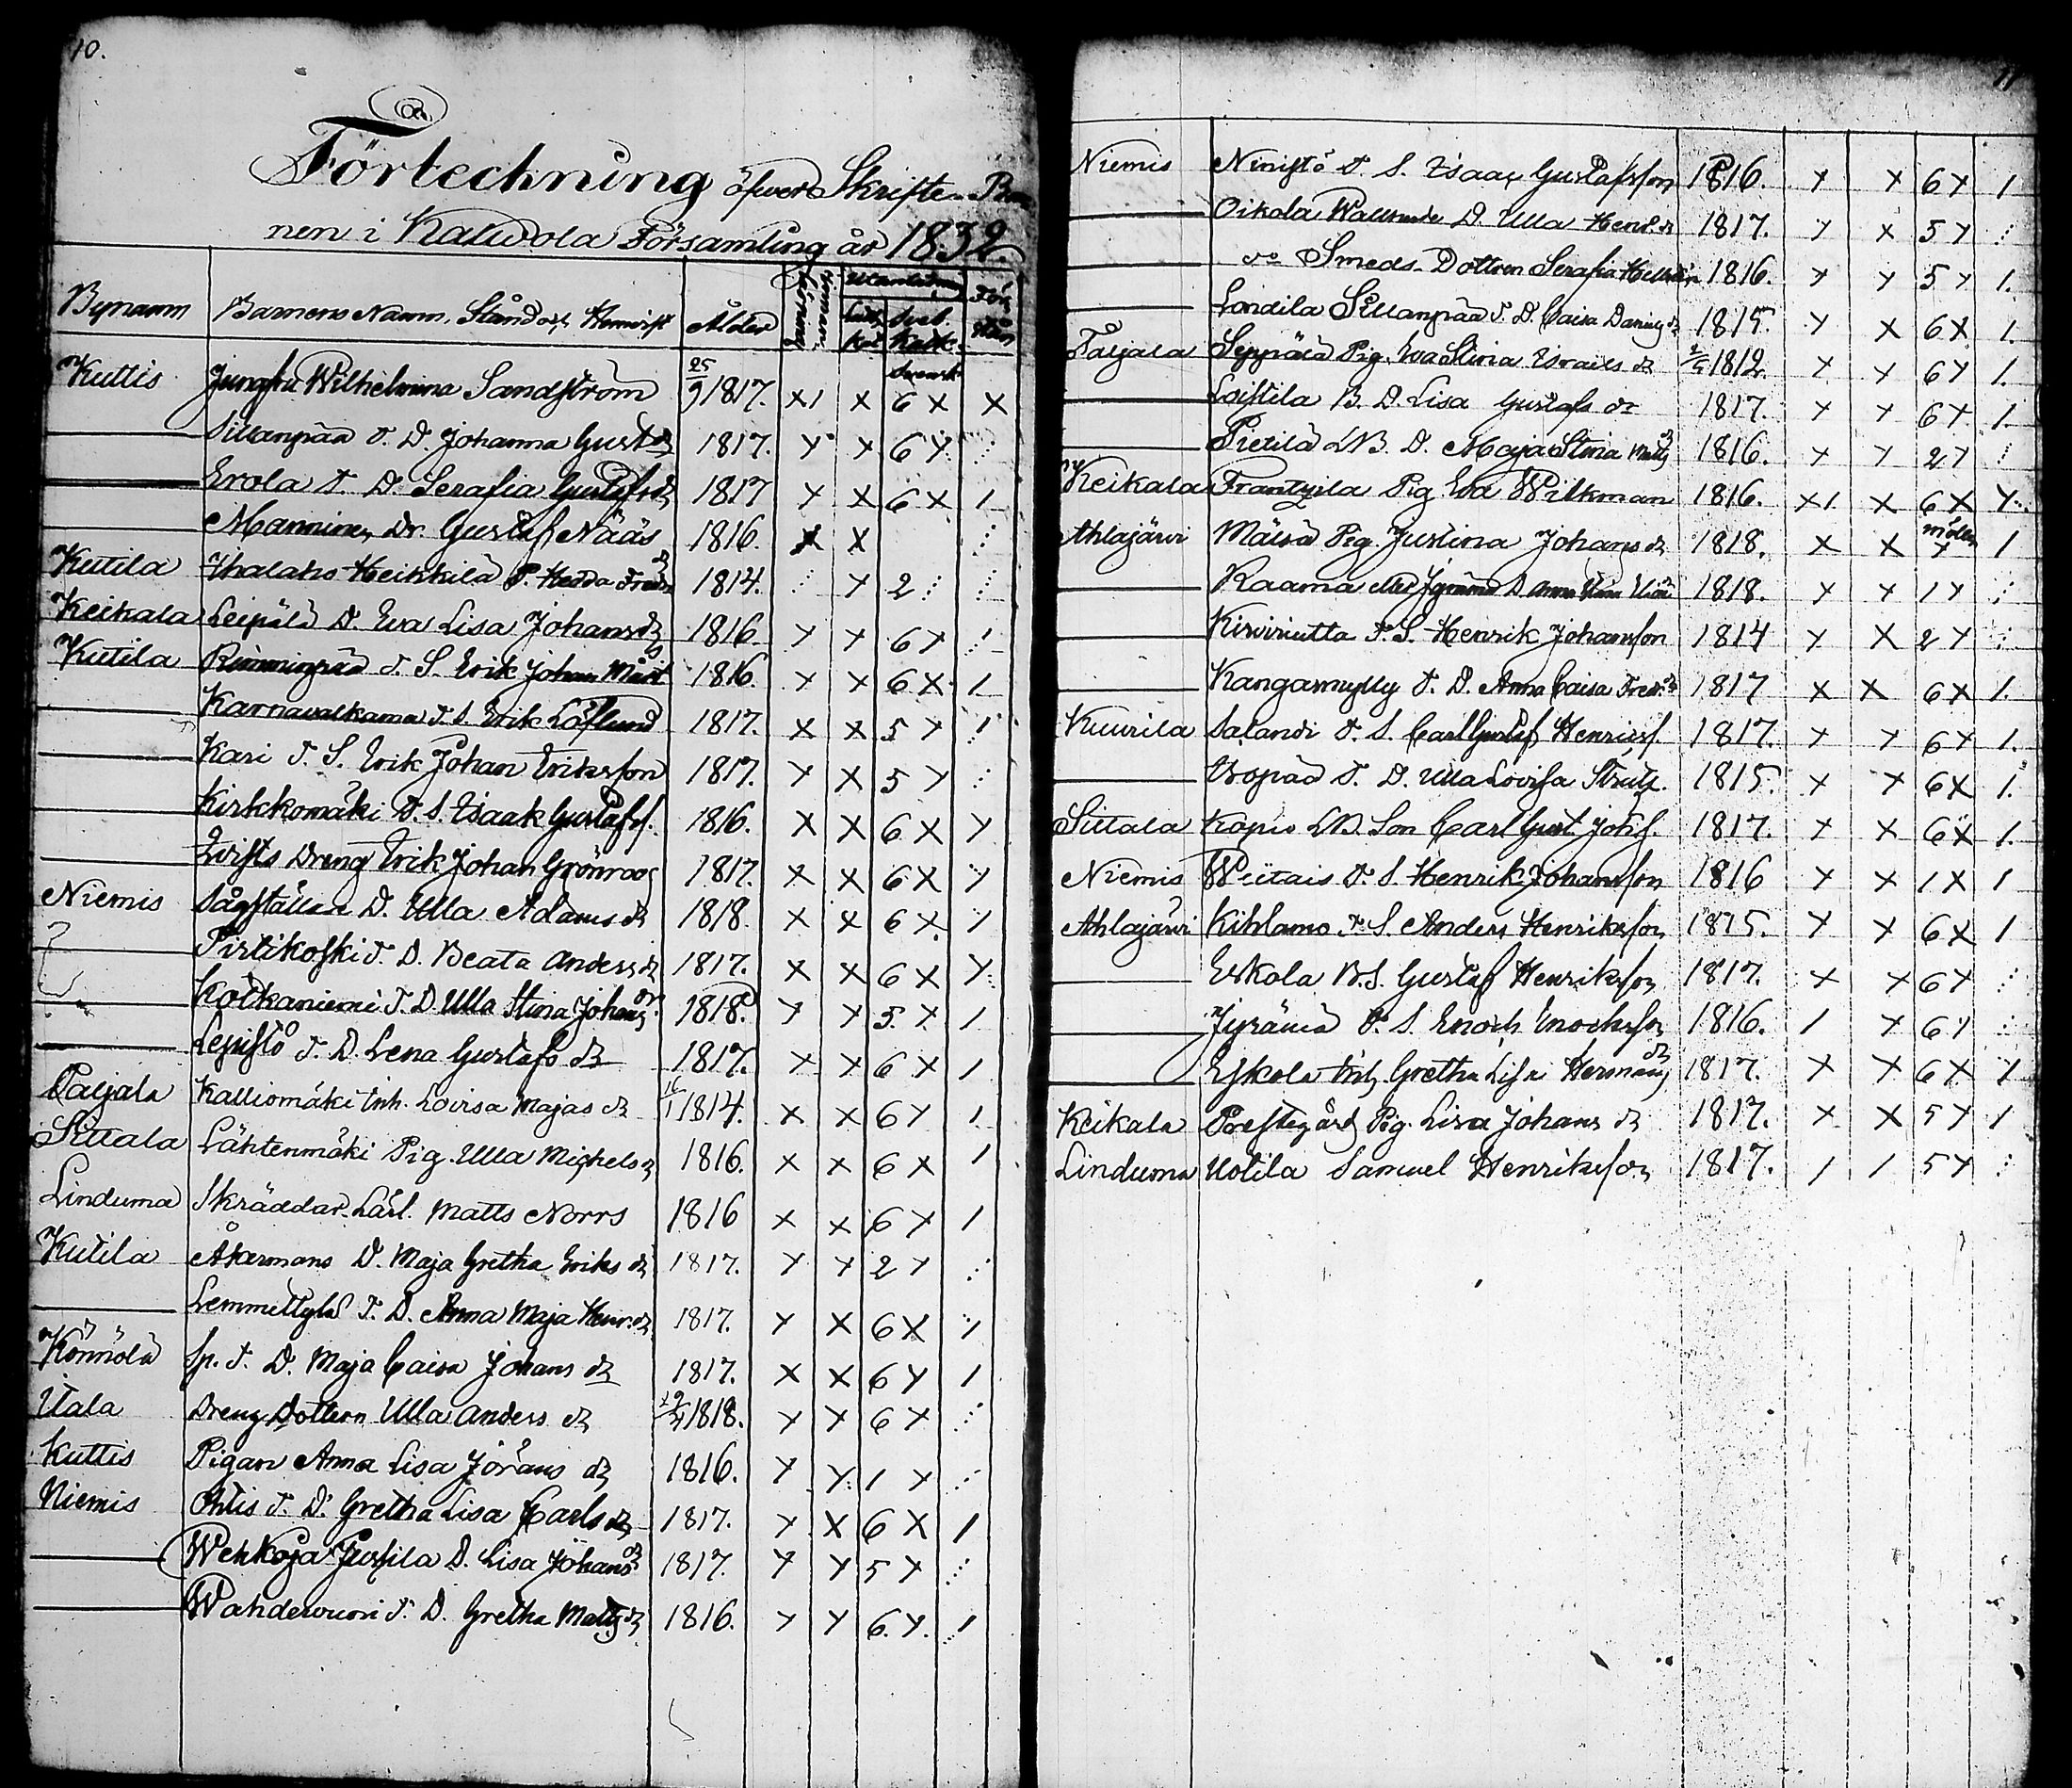 10.
Förteckning öfver Skrifte-Bar
nen i Kalvola Församling år 1832.
Bynamn Barnens Namn, Stånd och Hemvist Ålder Utanläsning
Kuttis Jungfru Wilhelmina Sandström 25/9 1817. x1 x 6 x x
Sillanpää T. D. Johanna Gust. dr 1817. x x 6 x
Erola T. D. Serafia Gustafs dr 1817 x x 6 x 1
Manninen Dr. Gustaf Nääs 1816. x x
Kutila Heikkilä P. Hedda Fredr. dr 1814. x 2
Keikala Leipälä D. Eva Lisa Johans dr 1816 x x 6 x 1
Kutila T. S. Erik Johan 1816. x x 6 x 1
Karnavalkama T. S. Erik Löflund 1817. x x 5 x 1
Kari T. S. Erik Johan Eriksson 1817. x x 5 x
Kirkkomäki T. S. Isaak Gustafss. 1816. x x 6 x x
Dreng Erik Johan Grönroos 1817. x x 6 x x
Niemis Sågställen D. Ulla Adams dr 1818. x x 6 x. 1
Pirttikoski T. D. Beata Anders dr 1817. x x 6 x x
Kotkaniemi T. D. Ulla Stina Johans dr 1818. x x 5. x. 1
Lepistö T. D. Lena Gustafs dr 1817. x x 6 x 1
Taljala Kalliomäki Inh. Lovisa Majas dr 1814. x x 6 x 1
Sittala Lähtenmäki Pig. Ulla Michels dr 1816. x x 6 x 1
Linduma Skräddar Lärl. Matts Norrs 1816 x x 6 x 1
Kutila Åkermans D. Maja Gretha Eriks dr 1817. x x 2 x
Lemmettylä T. D. Anna Maja Henr. dr 1817. x x 6 x 1
Könnölä Sp. T. D. Maja Caisa Johans dr 1817. x x 6 x 1
Itala Dreng Dottern Ulla Anders dr 1818. x x 6 x
Kuttis Pigan Anna Lisa Jörans dr 1816. x x 1 x
Niemis Ohtis T. D. Gretha Lisa Carls dr 1817. x x 6 x 1
Wehkoja Jussila D. Lisa Johans dr 1817. x x 5 x
Wahdervuori T. D. Gretha Matts dr 1816. x x 6. x. 1
11
Niemis Ninistö T. S. Isaac Gustafsson 1816. x x 6 x 1
Oikola D. Ulla Henr. dr 1817. x x 5 x
do Smeds-Dottren Serafia 1816. x x 5 x 1.
Landila Sillanpää T. D. Caisa dr 1815. x x 6 x 1.
Taljala Seppälä Pig. Eva Stina Israels dr 1812. x x 6 x 1.
Loistila B. D. Lisa Gustafs dr 1817. x x 6 x. 1.
Pietilä LB. D. Maja Stina Matts dr 1816. x x 2 x
Keikala Frantzila Pig. Eva Wilkman 1816. x1. x 6 x x
Ahlajärvi Pig. Justina Johans dr 1818. x x x 1
Raama Jyränä D. Anna 1818. x x 1 x
Kirvirintta T. S. Henrik Johansson 1814 x x 2 x
Kangasmylly T. D. Anna Caisa Fredr. dr 1817 x x 6 x 1.
Kuurila Salandi T. S. Carl Gustaf Henricss. 1817. x x 6 x 1.
T. D. Ulla Lovisa 1815. x x 6 x 1.
Sittala Kopis LB. Son Carl Gust. Johss. 1817. x x 6 x 1.
Niemis Wiitais T. S. Henrik Johansson 1816 x x 1 x 1
Ahlajärvi Kihlamo T. S. Anders Henriksson 1815. x x 6 x 1
Eskola B. S. Gustaf Henriksson 1817. x x 6 x
Jyränä T. S. Enoch Enochsson 1816. 1 x 6 x
Eskola Inh. Gretha Lisa Hermans dr 1817. x x 6 x x
Keikala Prestegård Pig. Lisa Johans dr 1817. x x 5 x 1
Linduma Uotila Samuel Henriksson 1817. 1 1 5 x